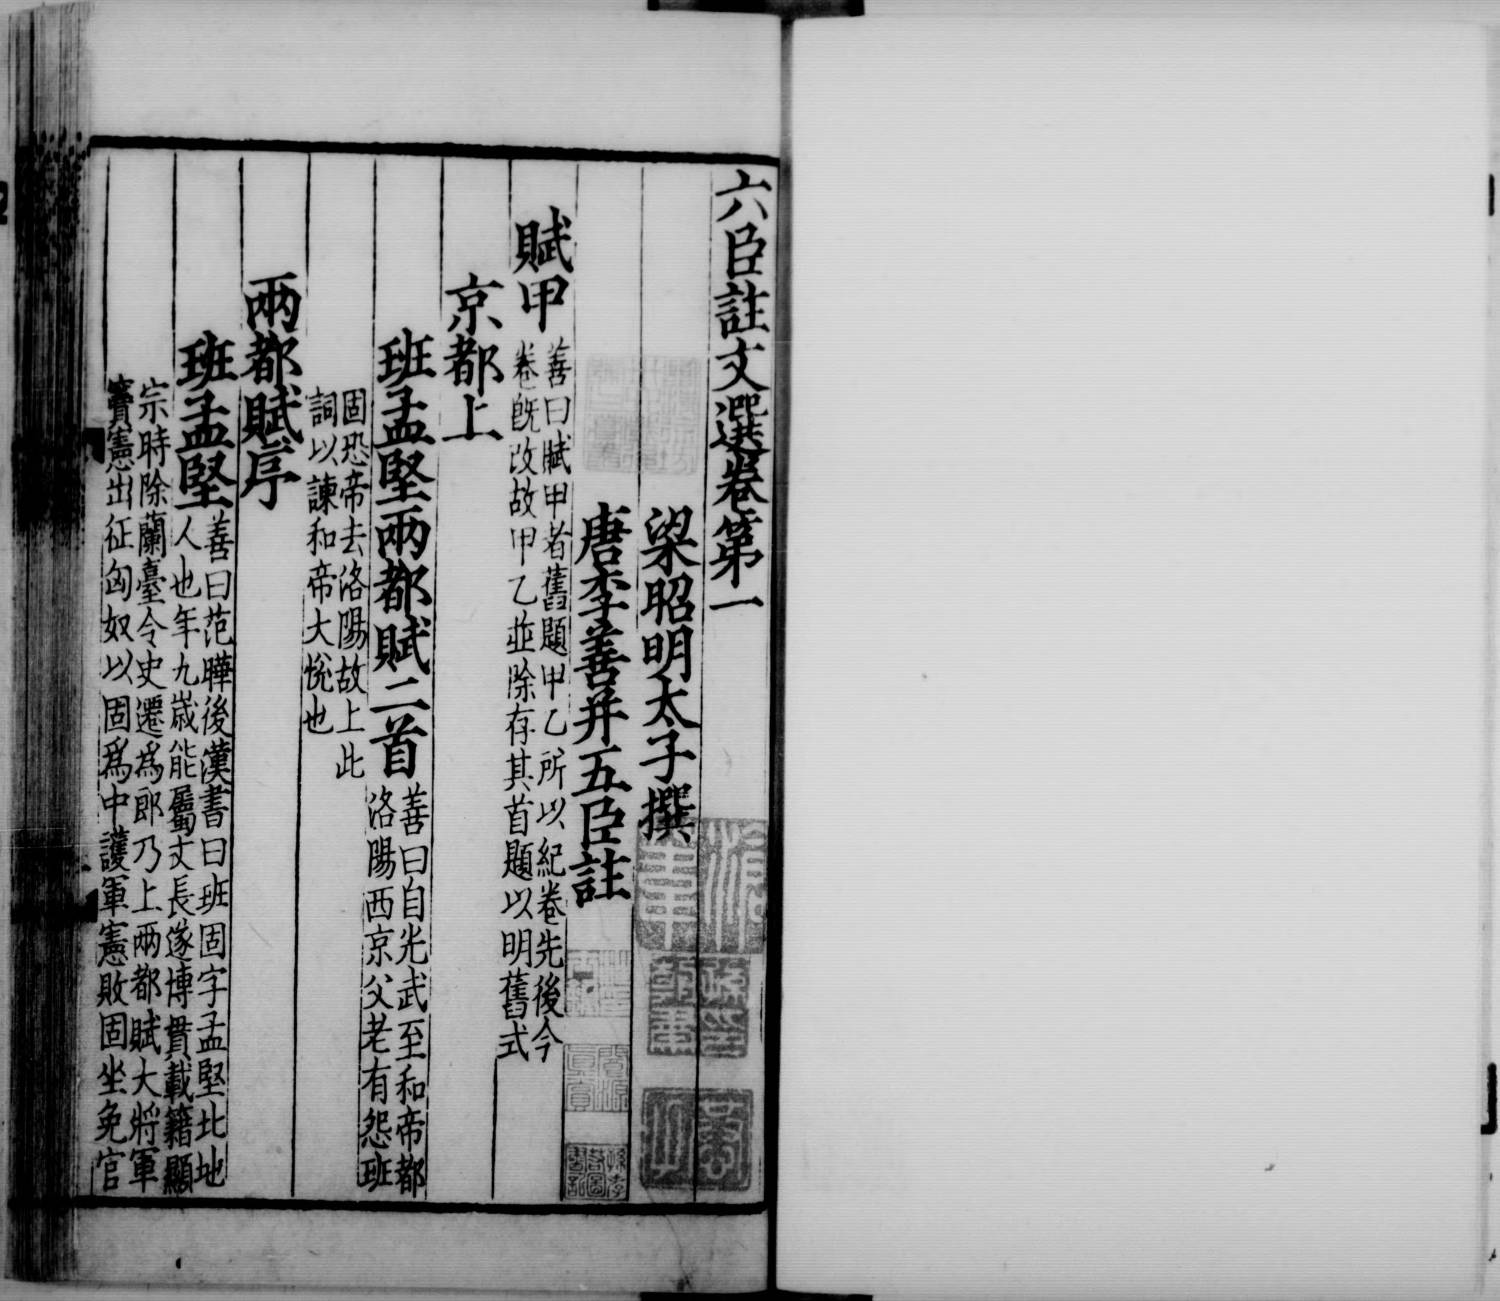 六臣註文選卷第一
梁昭明太子撰
唐李善并五臣註
賦甲
善曰賦甲者舊題甲乙所以紀卷先後今
卷旣改故甲乙並除存其首題以明舊式
京都上
班孟堅兩都賦二首
善曰自光武至和帝都
洛陽西京父老有怨班
固恐帝去洛陽故上此
詞以諫和帝大悅也
兩都賦序
班孟堅
善曰范曄後漢書曰班固字孟堅北地
人也年九歲能屬文長遂博貫載籍顯
宗時除蘭臺令史遷爲郎乃上兩都賦大將軍
竇憲出征匈奴以固爲中護軍憲敗固坐免官